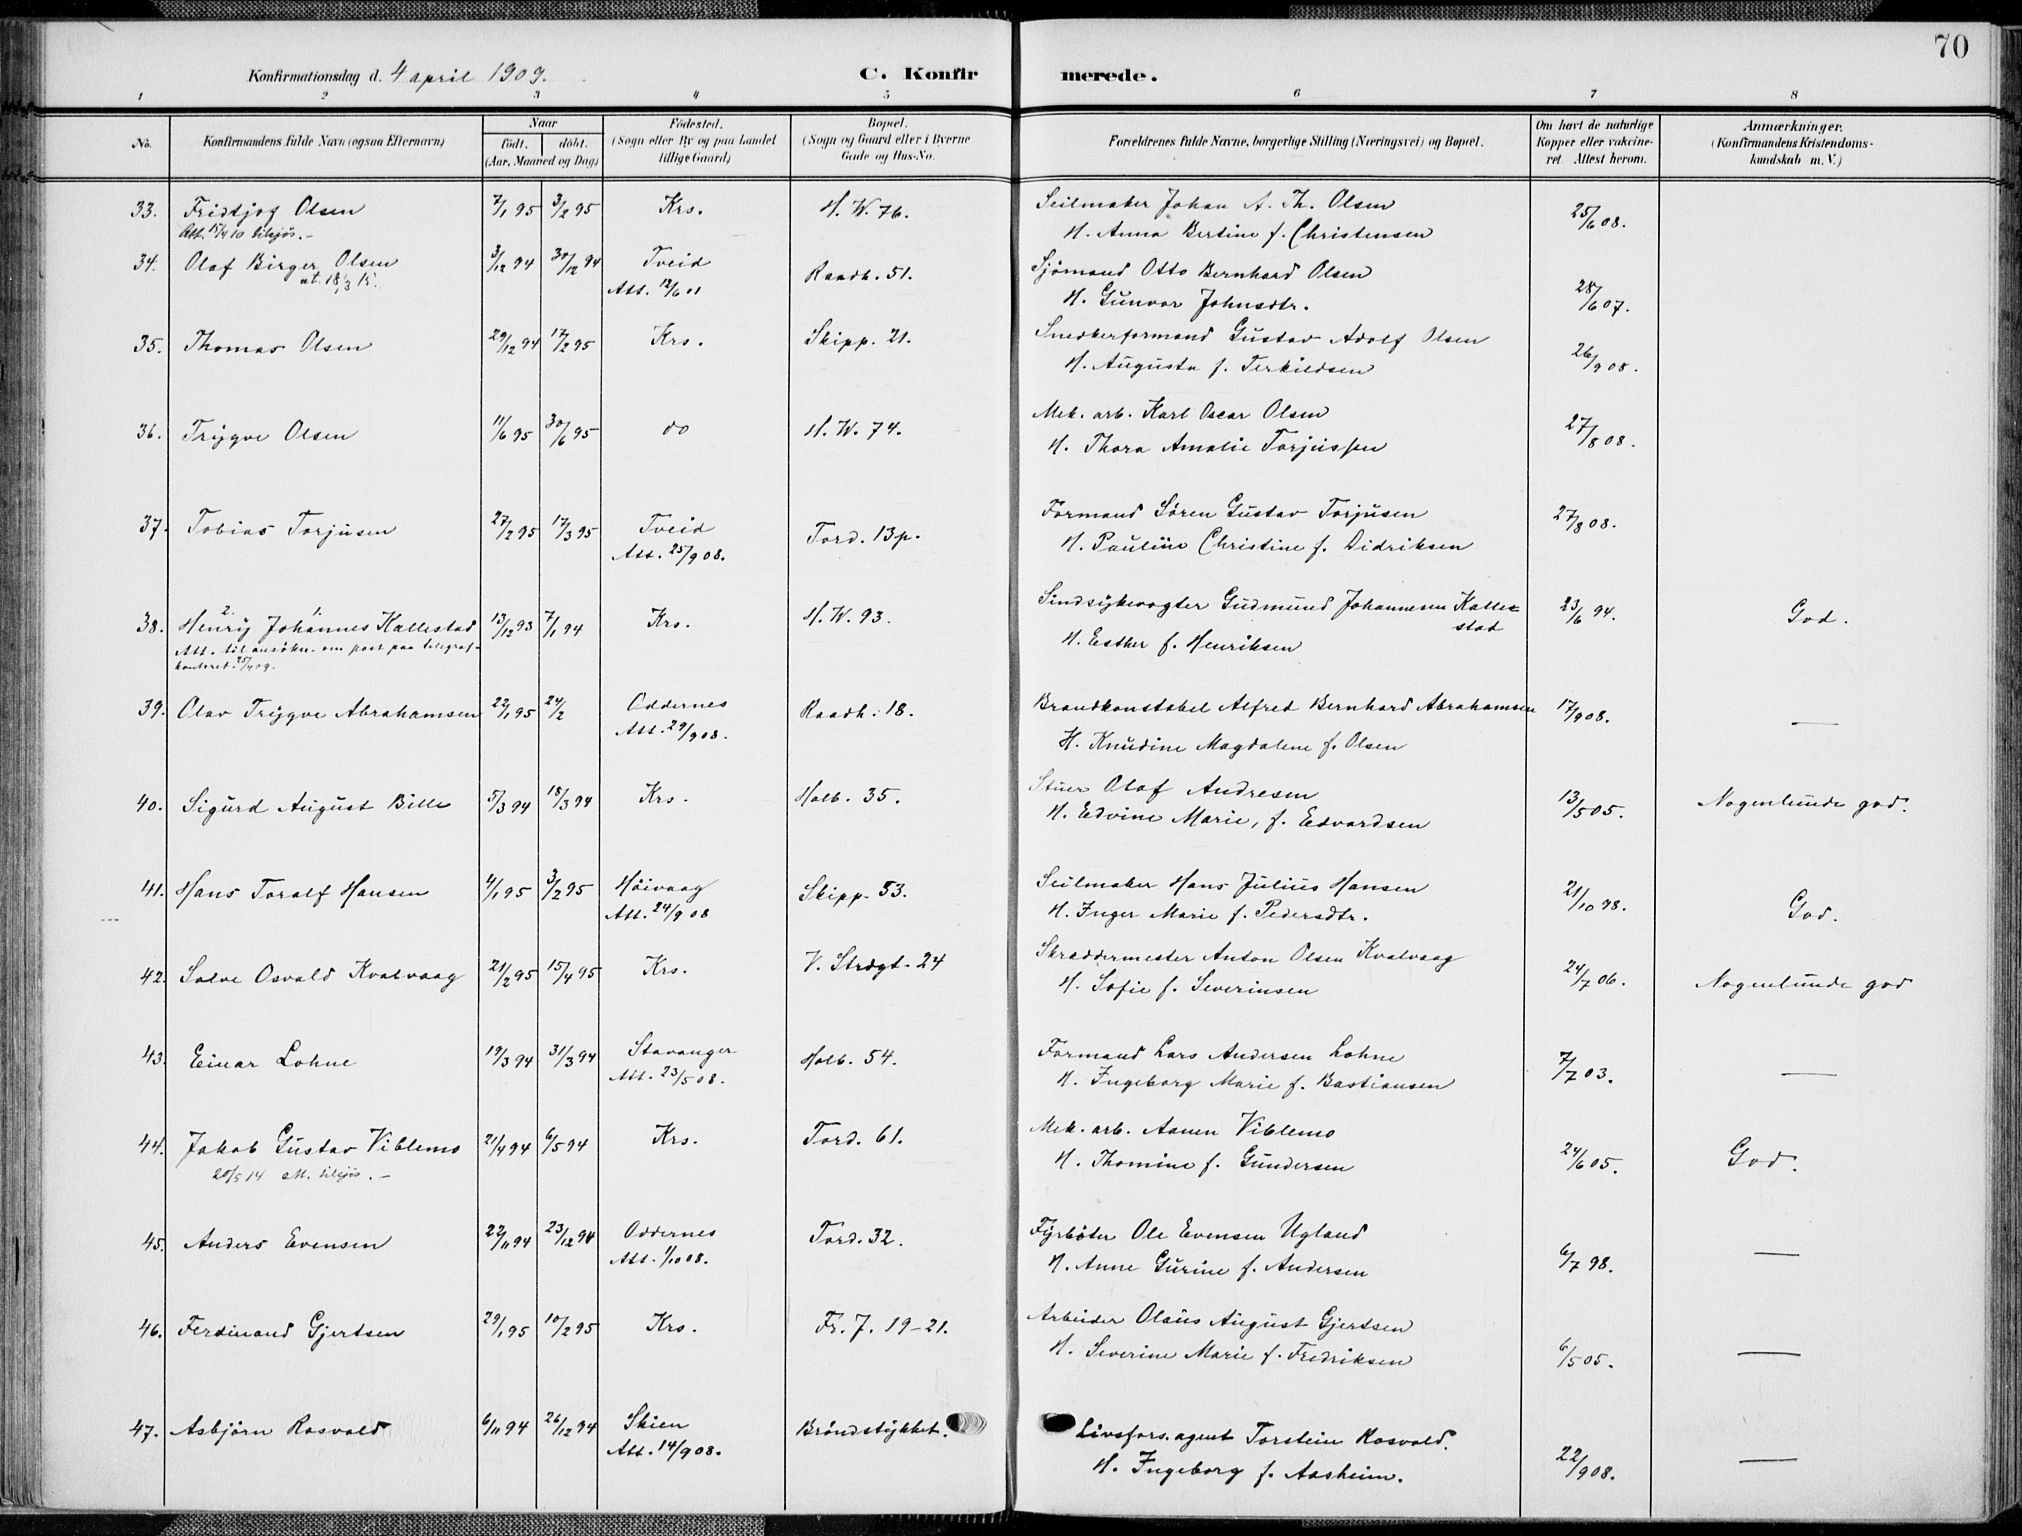 70
Konfirmationsdag d. 4 april 1909. C. Konfirmerede.
1 2 3 4 5 6 7 8
No. Konfirmandens fulde Navn (ogsaa Efternavn) Naar født. døbt. (Aar, Maaned og Dag) Fødested. (Sogn eller By og paa Landet tillige Gaard) Bopæl. (Sogn og Gaard eller i Byerne Gade og Hus-No. Forældrenes fulde Navne, borgerlige Stilling (Næringsvei) og Bopæl. Om havt de naturlige Kopper eller vakcineret. Attest herom. Anmærkninger. (Konfirmandens Kristendomskundskab m. V.)
33. Fridtjof Olsen 7/1 95 3/2 95 Krs. H. W. 76. Seilmaker Johan A. Th. Olsen 25/6 08.
Att. 15/4 10 tilsjøs.- H. Anna Bertine f. Christensen
34. Olaf Birger Olsen 3/12 94 30/12 94 Tveid Raadh. 51. Sjømand Otto Bernhard Olsen
at. 18/3 15. Att. 12/6 01 H. Gunvor Johnsdtr. 28/6 07.
35. Thomas Olsen 29/12 94 17/2 95 Krs. Skipp. 21. Snedkerformand Gustav Adolf Olsen
H. Augusta f. Terkildsen 26/9 08.
36. Trygve Olsen 11/6 95 30/6 95 do H. W. 74. Mek. arb. Karl Oscar Olsen 27/8 08.
H. Thora Amalie Torjussen
37. Tobias Torjusen 27/2 95 17/3 95 Tveid Tord. 13p. Formand Søren Gustav Torjusen 27/8 08.
Att. 25/9 08. H. Pauline Christine f. Didriksen
38. Henry 2. Johannes 1. Kallestad 13/12 93 7/1 94 Krs. H. W. 93. Sindsykevogter Gudmund Johannesen Kallestad 23/6 94. God.
Att. til ansøkn. om post paa telegraf- H. Esther f. Henriksen
kontoret. 25/4 09.
39. Olav Trygve Abrahamsen 22/1 95 24/2 Oddernes Raadh. 18. Brandkonstabel Alfred Bernhard Abrahamsen 17/9 08. —
Att. 29/9 08. H. Knudine Magdalene f. Olsen
40. Sigurd August Bille 5/3 94 18/3 94 Krs. Holb. 35. Stuer Olaf Andresen 13/5 05. Nogenlunde god.
H. Edvine Marie, f. Edvardsen
41. Hans Toralf Hansen 4/1 95 3/2 95 Høivaag Skipp. 53. Seilmaker Hans Julius Hansen 21/10 98. God.
Att. 24/9 08 H. Inger Marie f. Pedersdtr.
42. Salve Osvald Kvalvaag 21/2 95 15/4 95 Krs. V. Strdgt. 24 Skræddermester Anton Olsen Kvalvaag 24/7 06. Nogenlunde god
H. Sofie f. Severinsen
43. Einar Lohne 19/3 94 31/3 94 Stavanger Holb. 54. Formand Lars Andersen Lohne 7/7 03. —
Att. 23/5 08. H. Ingeborg Marie f. Bastiansen
44. Jakob Gustav Viblemo 21/4 94 6/5 94 Krs. Tord. 61. Mek. arb. Aanen Viblemo 24/6 05. God.
20/5 14 att. tilsjøs.- H. Thomine f. Gundersen
45. Anders Evensen 22/11 94 23/12 94 Oddernes Tord. 32. Fyrbøter Ole Evensen Ugland 6/7 98. —
Att. 1/10 08. H. Anne Gurine f. Andersen
46. Ferdinand Gjertsen 29/1 95 10/2 95 Krs. Fr. 7. 19-21. Arbeider Olaus August Gjertsen
H. Severine Marie f. Fredriksen 6/5 05. —
47. Asbjørn Rosvold 6/11 94 26/12 94 Skien Brøndstykket. Livsfors.agent Torstein Rosvold.
Att. 14/9 08. H. Ingeborg f. Aasheim. 22/9 08. —